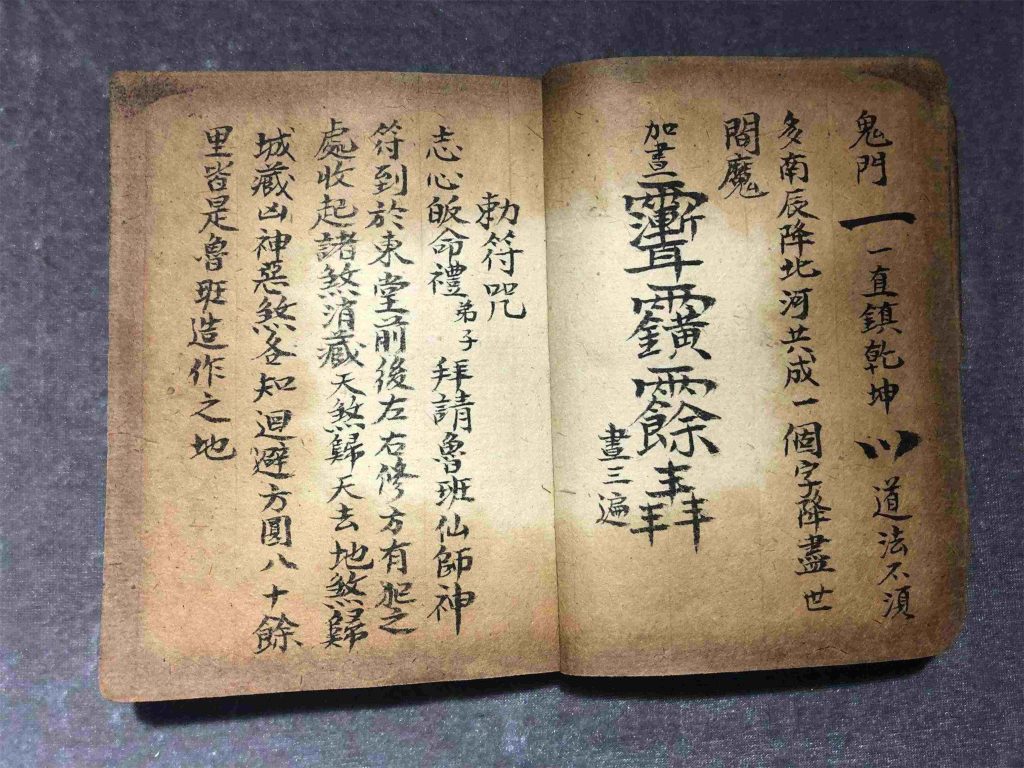 鬼門 一 一直鎮乾坤 道法不須
多南辰降北河共成一個字降盡世
間魔
加畫
畫三遍
勅符咒
志心皈命禮弟子 拜請魯班仙師神
符到於東堂前後左右修方有犯之
處收起諸煞消藏天煞歸天去地煞歸
城藏凶神惡煞各知迴避方圓八十餘
里皆是魯班造作之地